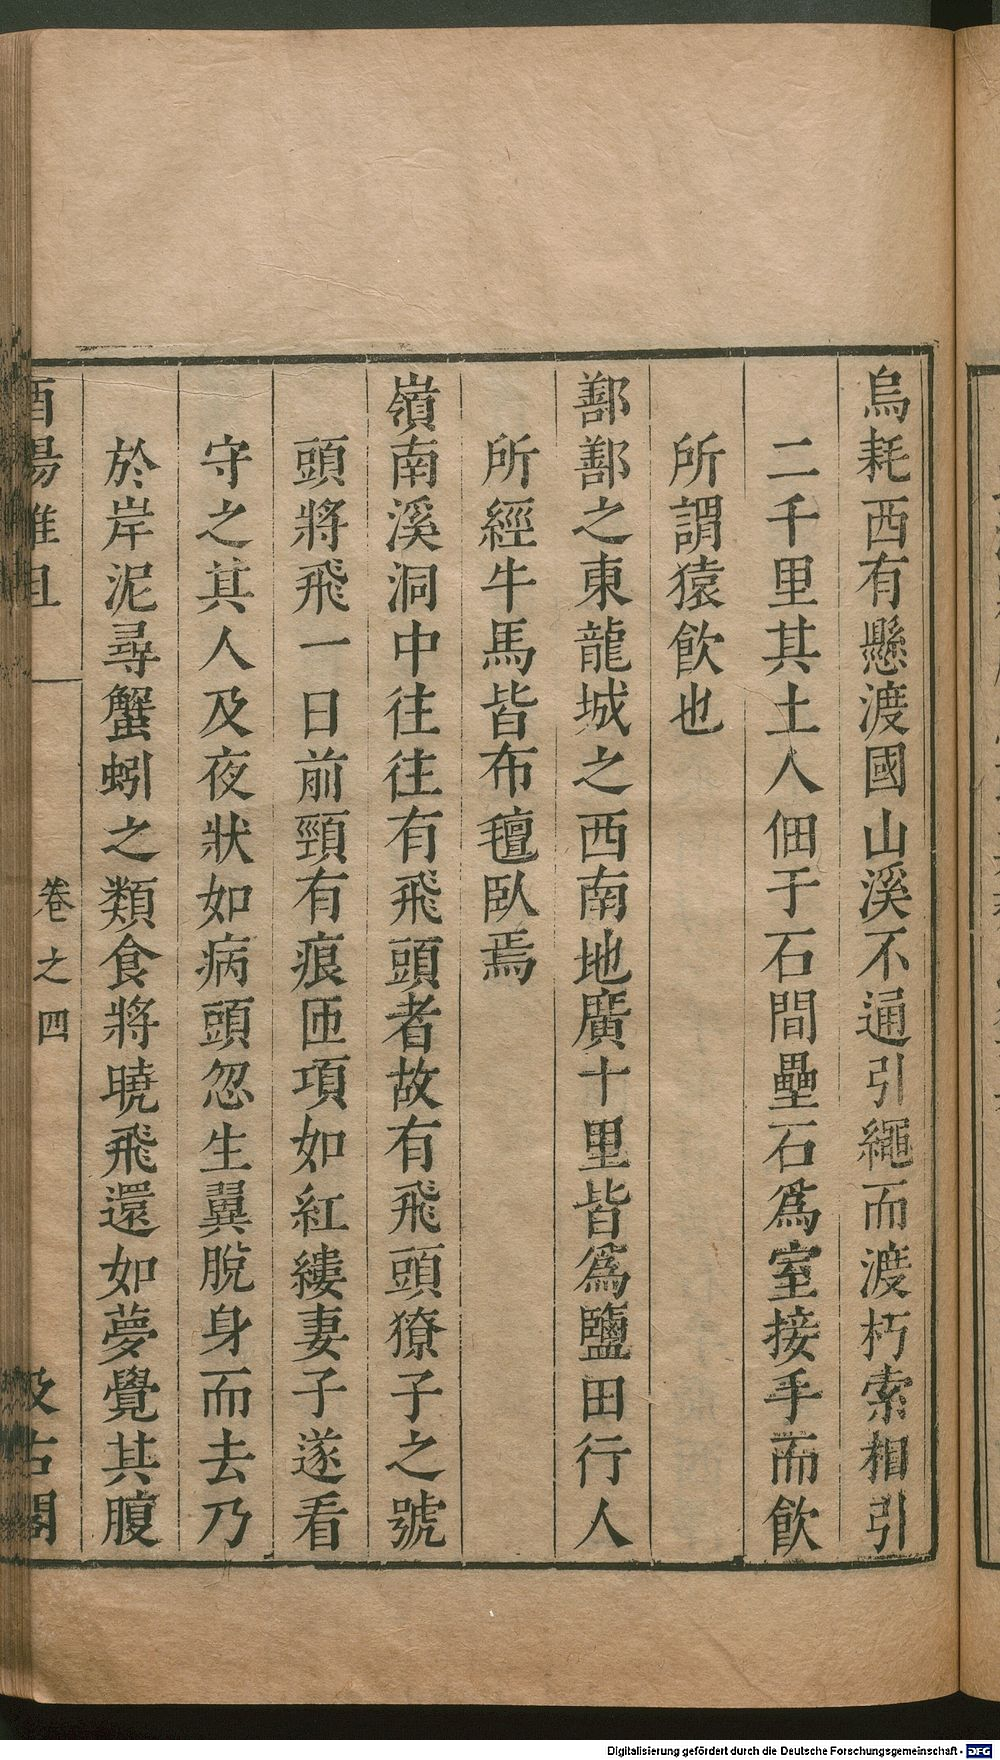 烏耗西有懸渡國山溪不通引繩而渡朽索相引
二千里其土人佃于石間壘石爲室接手而飲
所謂猿飲也
鄯鄯之東龍城之西南地廣十里皆爲鹽田行人
所經牛馬皆布氊臥焉
嶺南溪洞中往往有飛頭者故有飛頭獠子之號
頭將飛一日前頸有痕匝項如紅縷妻子遂看
守之其人及夜狀如病頭忽生翼脫身而去乃
於岸泥尋蟹蚓之類食將曉飛還如夢覺其腹
酉陽雜俎 卷之四 汲古閣
Digitalisierung gefördert durch die Deutsche Forschungsgemeinschaft - DFG